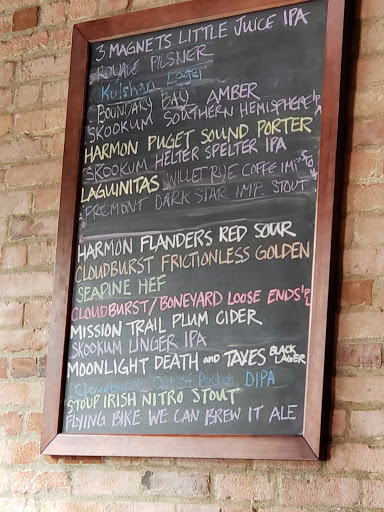 3 MAGNETS LITTLE JUICE IPA
ROYALE PILSNER
Kulshan Lager
BOUNDARY BAY AMBER
SKOOKUM SOUTHERN HEMISPHERE IPA
HARMON PUGET SOUND PORTER
SKOOKUM HELTER SPELTER IPA
LAGUNITAS WILLET RYE COFFE IMP STOUT
FREMONT DARK STAR IMP. STOUT
HARMON FLANDERS RED SOUR
CLOUDBURST FRICTIONLESS GOLDEN
SEAPINE HEF
CLOUDBURST/BONEYARD LOOSE ENDS IPA
MISSION TRAIL PLUM CIDER
SKOOKUM LINGER IPA
MOONLIGHT DEATH AND TAXES BLACK LAGER
Cloudburst Out of Pocket DIPA
STOUP IRISH NITRO STOUT
FLYING BIKE WE CAN BREW IT ALE